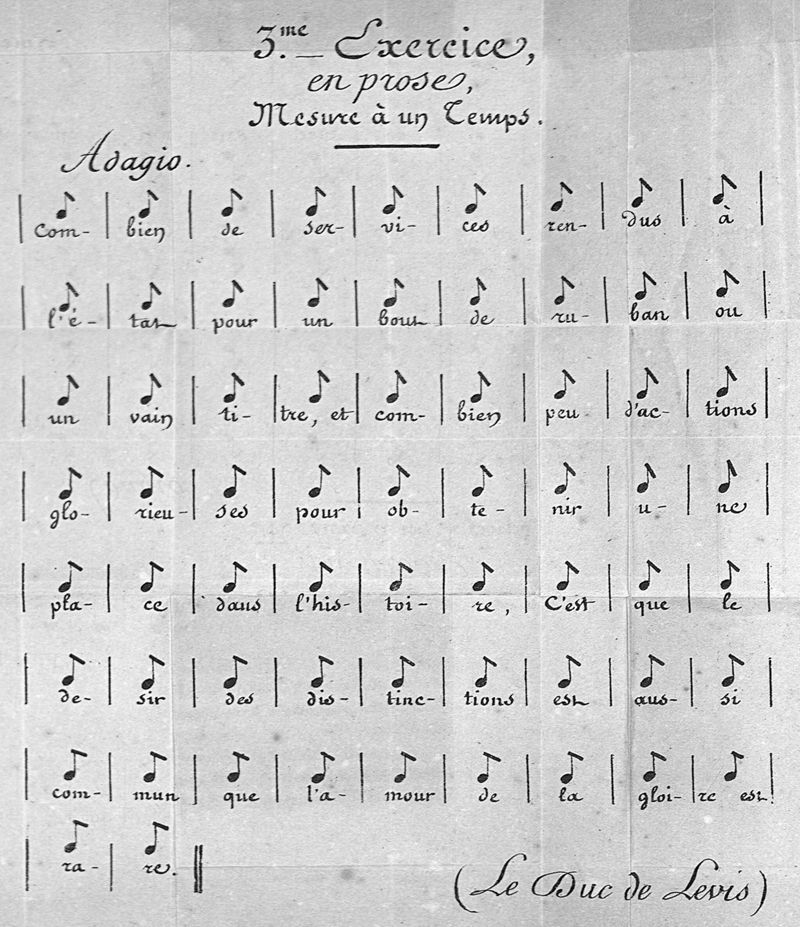 3.me — Exercice,
en prose,
Mesure à un Temps.
Adagio.
Com- bien de ser- vi- ces ren- dus à
l'é- tat pour un bout de ru- ban ou
un vain ti- tre, et com- bien peu d'ac- tions
glo- rieu- ses pour ob- te- nir u- ne
pla- ce dans l'his- toi- re, C'est que le
de- sir des dis- tinc- tions est aus- si
com- mun que l'a- mour de la gloi- re est
ra- re.
(Le Duc de Levis)